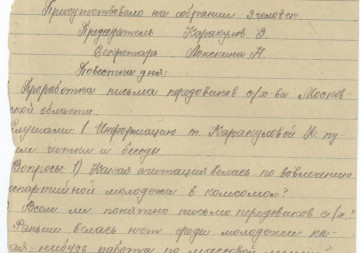 Присутствовало на собрании 9 человек
Председатель Каракулов Э.
Секретарь Локскина Н.
Повестка дня:
Проработка письма передовиков с/х-ва Москов-
ской области.
Слушали 1. Информацию т. Каракуловой К.
читки и беседы
Вопросы: 1) Какая агитация велась по вовлечению
беспартийной молодежи в комсомол?
Всем ли понятно письмо передовиков с/х?
Раньше велась среди молодежи ка-
кая-нибудь работа по массовой